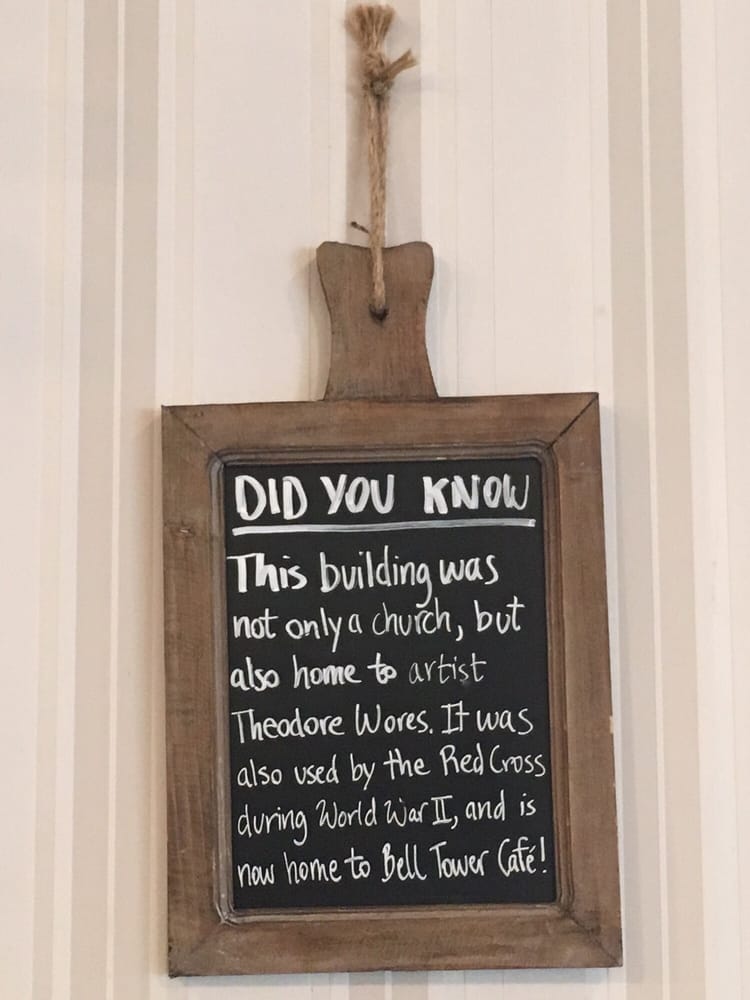 DID YOU KNOW
This building was
not only a church, but
also home to artist
Theodore Wores. It was
also used by the Red Cross
during World War II, and is
now home to Bell Tower Café!